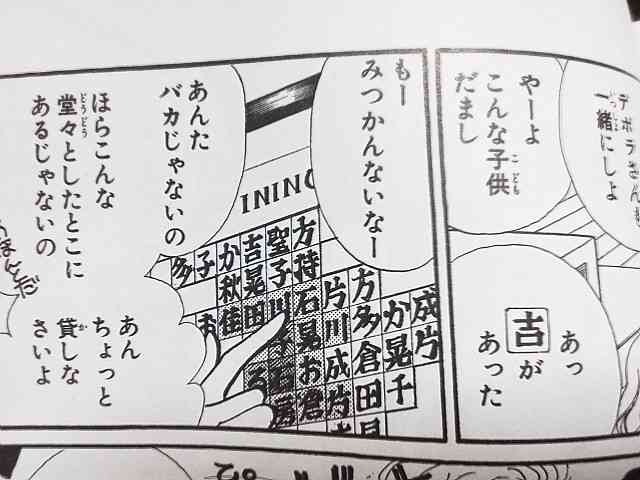 デボラさんも
一緒にしよ
やーよ
こんな子供
だまし
あっ
吉が
あった
もー
みつかんないなー
ININ
成片
か晃千
方多倉田
片川成片
方持石晃お倉
聖子川子石房
吉晃田
る
か秋佳
子
お
多
あんた
バカじゃないの
ほらこんな
堂々としたとこに
あるじゃないの
あん
ちょっと
貸しな
さいよ
ほんとだ